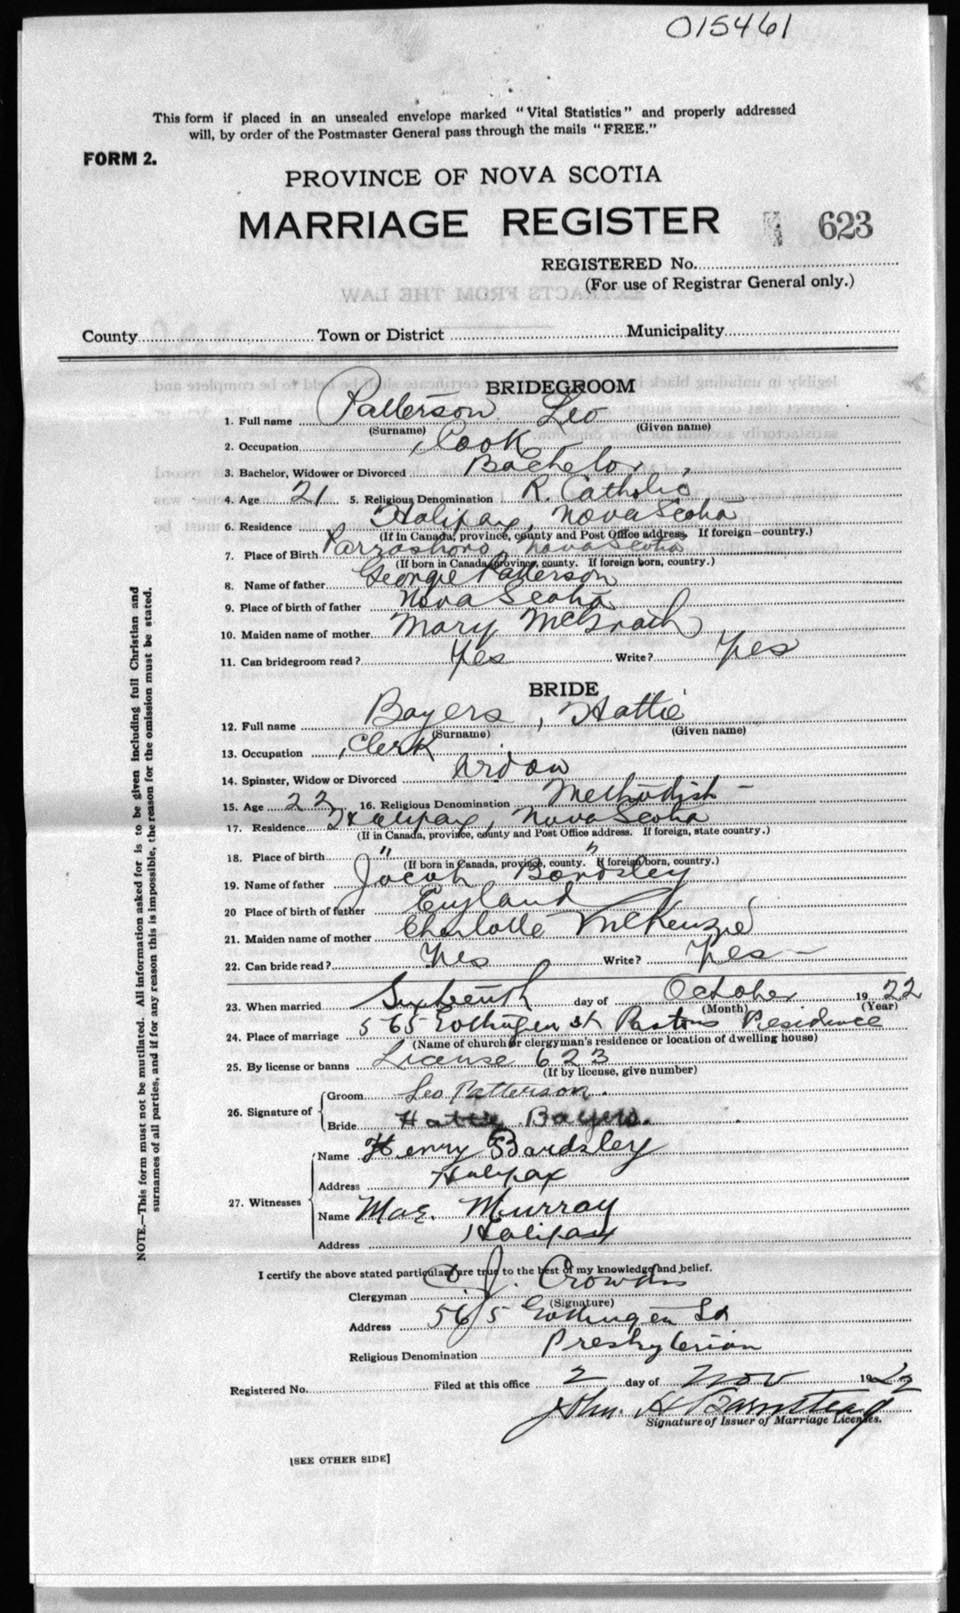 015461
This form if placed in an unsealed envelope marked "Vital Statistics" and properly addressed
will, by order of the Postmaster General pass through the mails "FREE."
FORM 2.
PROVINCE OF NOVA SCOTIA
MARRIAGE REGISTER 623
REGISTERED No.
(For use of Registrar General only.)
EXTRACTS FROM THE LAW
County Town or District Municipality
BRIDEGROOM
1. Full name Patterson Leo
(Surname) (Given name)
2. Occupation Cook
3. Bachelor, Widower or Divorced Bachelor
4. Age 21 5. Religious Denomination R. Catholic
6. Residence Halifax, Nova Scotia
(If in Canada, province, county and Post Office address. If foreign country.)
7. Place of Birth Parrsboro, Nova Scotia
(If born in Canada, province, county. If foreign born, country.)
8. Name of father George Patterson
9. Place of birth of father Nova Scotia
10. Maiden name of mother Mary McGrath
11. Can bridegroom read? Yes Write? Yes
BRIDE
12. Full name Bayers, Hattie
(Surname) (Given name)
13. Occupation Clerk
14. Spinster, Widow or Divorced Widow
15. Age 22 16. Religious Denomination Methodist -
17. Residence Halifax, Nova Scotia
(If in Canada, province, county and Post Office address. If foreign, state country.)
18. Place of birth " "
(If born in Canada, province, county. If foreign born, country.)
19. Name of father Jacob Bardsley
20 Place of birth of father England
21. Maiden name of mother Charlotte McKenzie
22. Can bride read? Yes Write? Yes -
23. When married Sixteenth day of October 1922
(Month) (Year)
24. Place of marriage 565 Gottingen St Pastors Residence
(Name of church or clergyman's residence or location of dwelling house)
25. By license or banns License 623
(If by license, give number)
26. Signature of Groom Leo Patterson.
Bride Hattie Bayers.
27. Witnesses Name Henry Bardsley
Address Halifax
Name Mae. Murray
Address Halifax
I certify the above stated particulars are true to the best of my knowledge and belief.
Clergyman J.
(Signature)
Address 565 Gottingen St
Religious Denomination Presbyterian
Registered No. Filed at this office 2 day of Nov 1922
John. H Barnstead
Signature of Issuer of Marriage Licenses.
[SEE OTHER SIDE]
NOTE.—This form must not be mutilated. All information asked for is to be given including full Christian and
surnames of all parties, and if for any reason this is impossible, the reason for the omission must be stated.